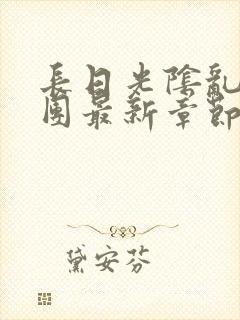 長日光陰亂
園最新章節
黛安芬